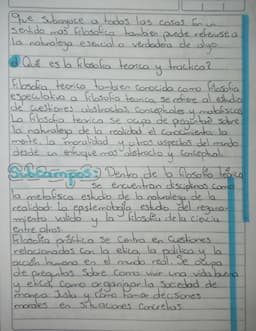 que subyace a todas las cosas. En un
sentido mas filosofico tambien puede referirse a
la naturaleza esencial o verdadera de algo.
¿Qué es la filosofia teorica y practica?
Filosofia teorica tambien conocida como filosofia
especulativa o filosofia teorica se refiere al estudio
de cuestiones abstractas, conceptuales y metafisicas
La filosofia teorica se ocupa de preguntas sobre
la naturaleza de la realidad el conocimiento la
mente, la moralidad y otros aspectos del mundo
desde un enfoque mas abstracto y conceptual.
Subcampos: Dentro de la filosofia teorica
se encuentran disciplinas como
la metafisica estudio de la naturaleza de la
realidad. la epistemologia estudio del razona-
miento valido y la filosofia de la ciencia
entre otros.
Filosofia práctica se centra en cuestiones
relacionadas con la etica, la politica y la
acción humana en el mundo real. Se ocupa
de preguntas sobre como vivir una vida buena
y etica, como organizar la sociedad de
manera justa y como tomar decisiones
morales en situaciones concretas